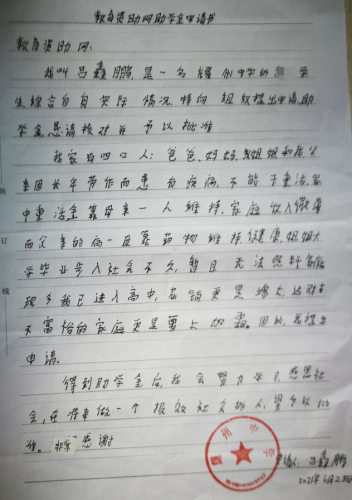 教育资助网助学金申请书
教育资助网:
我叫吕鑫鹏,是一名耀州中学的 学
生,综合自身实际情况,特向 组织提出申请助
学金,恳请核对并予以批准
我家有四口人:爸爸、妈妈、姐姐和我,父
亲因长年劳作而患有疾病,不能干重活,家
中重活全靠母亲一人维持,家庭收入微薄
而父亲的病一直靠药物维持健康,姐姐大
学毕业步入社会不久,暂且无法照料家庭
现今我已进入高中,花销更是增大,这对本
不富裕的家庭更是雪上加霜。因此,我提出
申请。
得到助学金后,我会努力学习,感恩社
会,在将来做一个报效社会的人,望予以批
准。非常感谢
申请人:吕鑫鹏
2021年6月2日